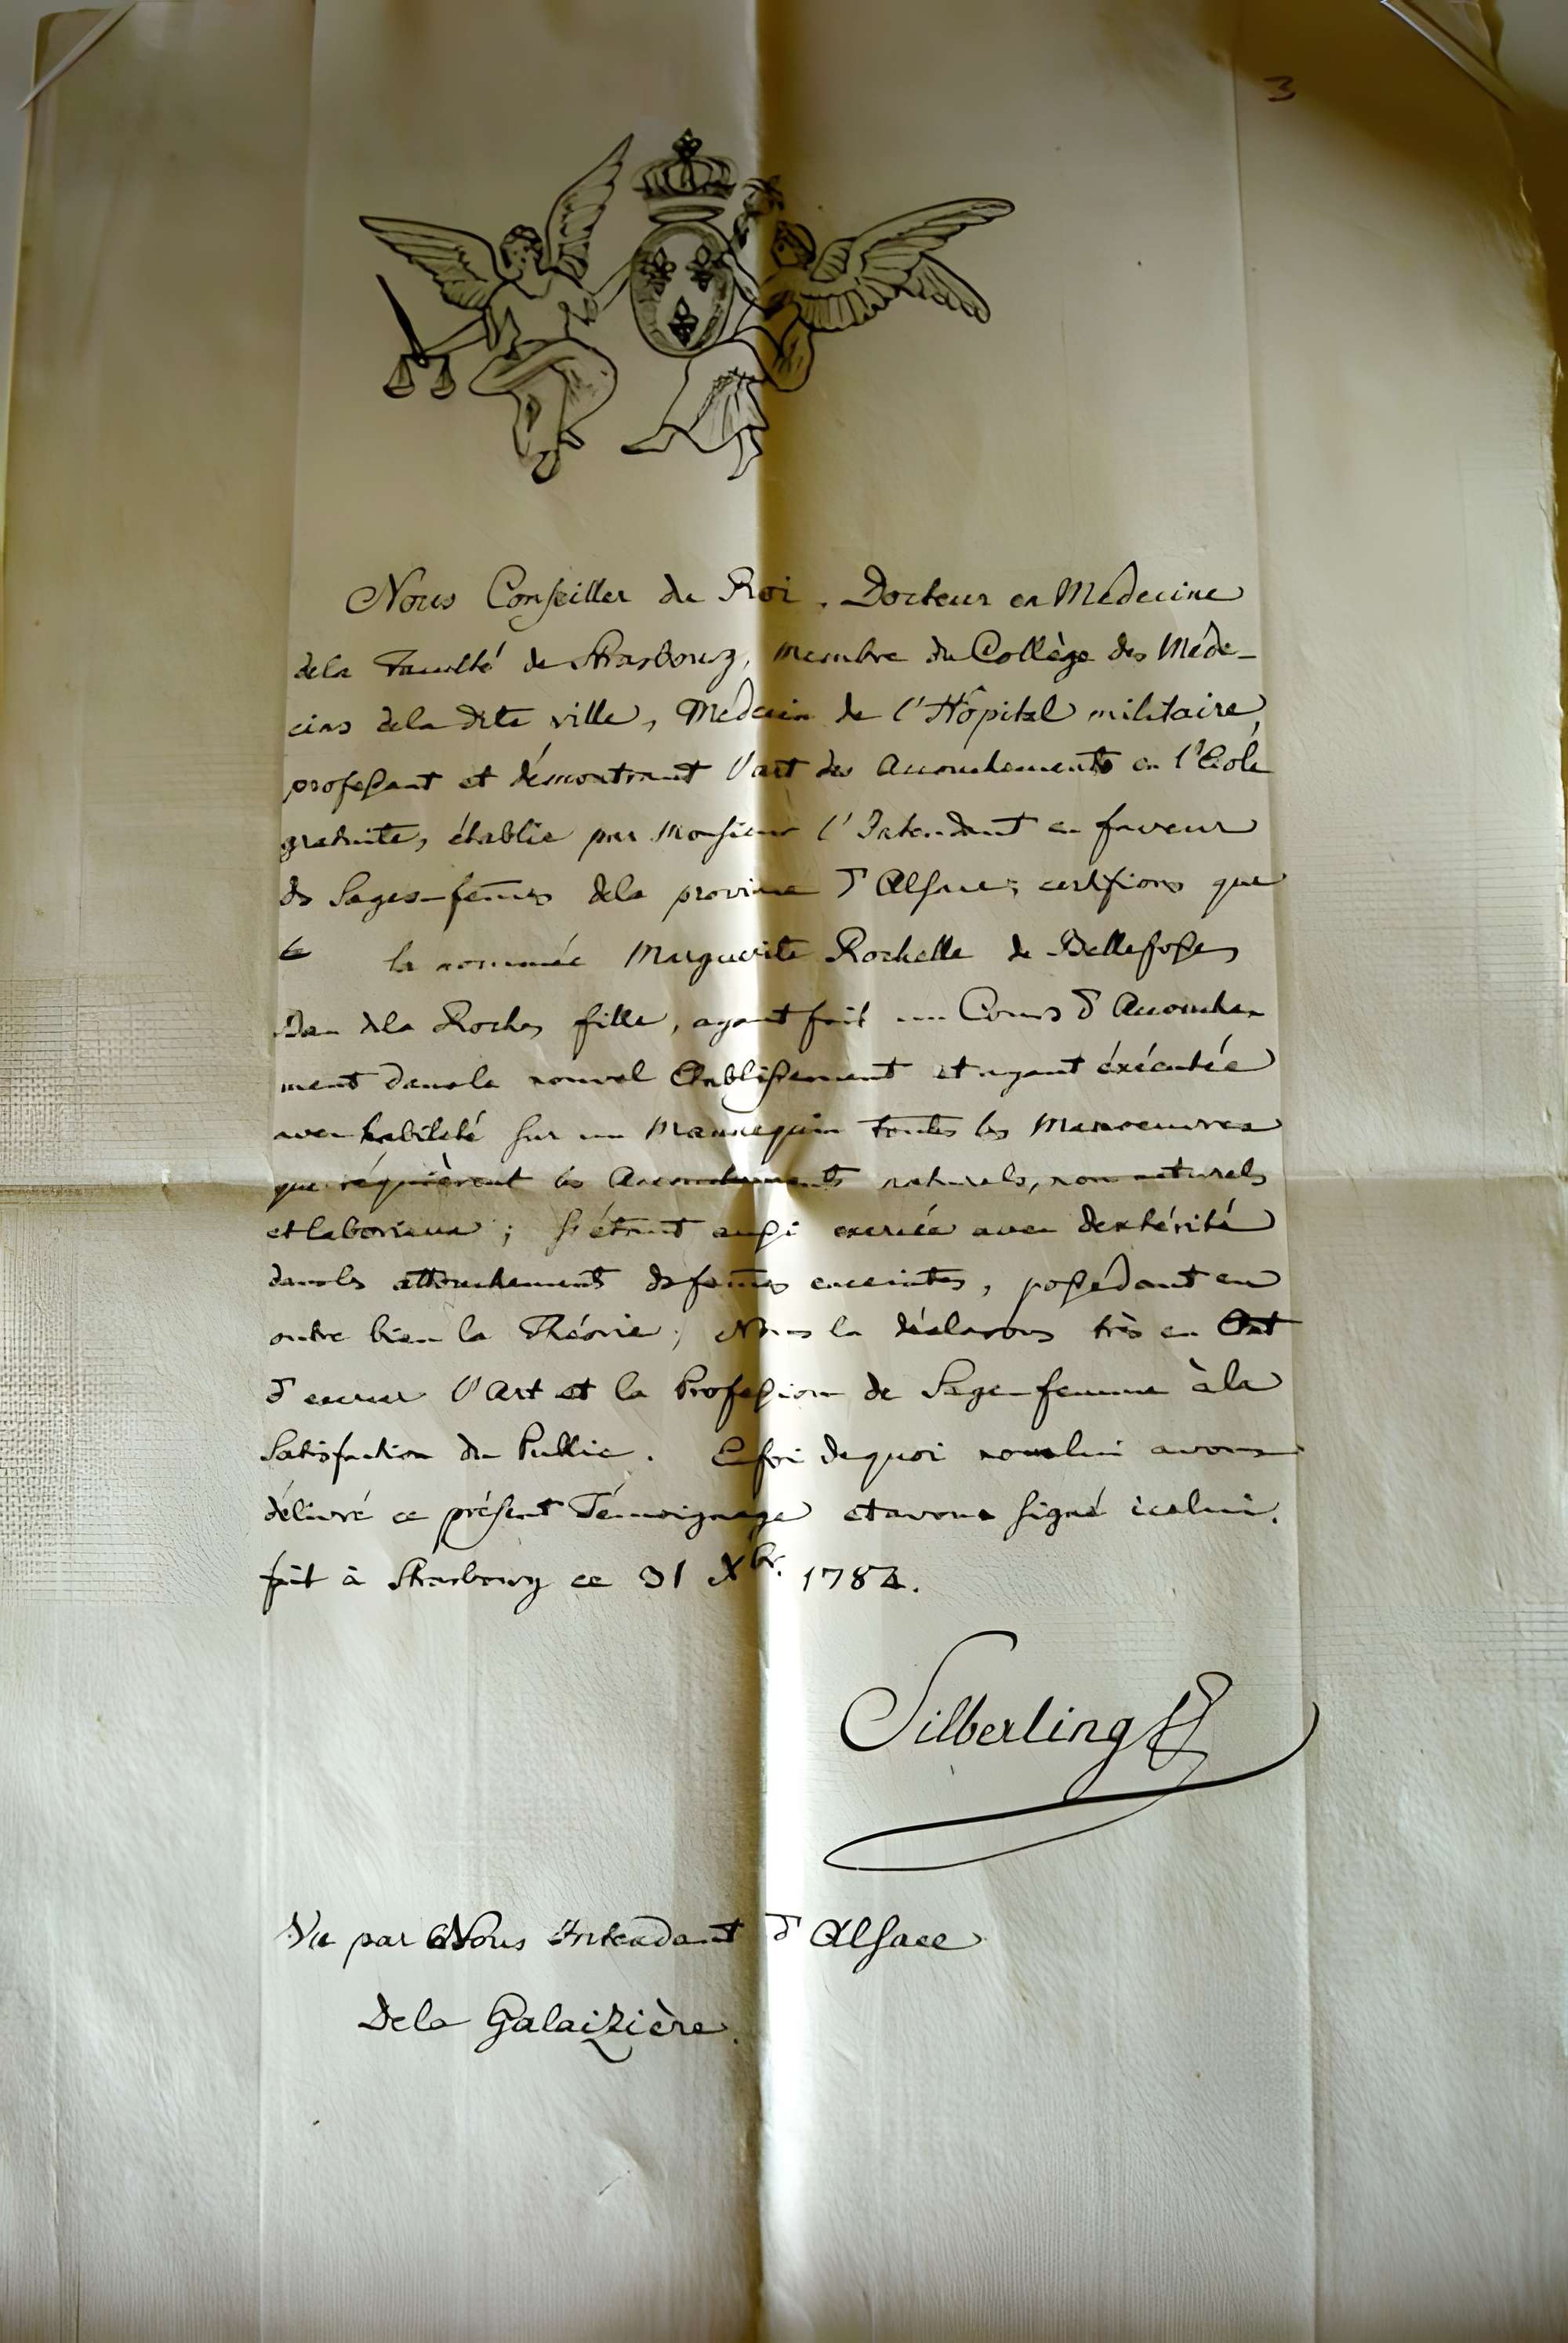 3
Nous Conseiller du Roi, Docteur en Médecine
dela Faculté de Strasbourg, membre du Collège des Méde-
cins dela dite ville, Médecin de l'Hôpital militaire,
professant et démontrant l'art des Accouchements en l'École
gratuite, établie par Monsieur l'Intendant en faveur
des Sages-femes dela province d'Alsace; certifions que
la nommée Marguerite Rochelle de Bellefosse
Ban dela Roche, fille, ayant fait un Cours d'Accouche
ment dans le nouvel Etablissement et ayant éxécutée
avec habileté sur un Mannequin toutes les Manoeuvres
que réquièrent les Accouchements naturels, non naturels
et laborieux; s'étant aussi exercée avec dextérité
dans les attouchements des femes enceintes, possédant en
outre bien la Théorie; Nous la déclarons très en Etat
d'exercer l'Art et la Profession de Sage-femme à la
Satisfaction du Public. En foi de quoi nous lui avons
délivré ce présent Témoignage et avons signé icelui.
fait à Strasbourg ce 31 Xbr. 1784.
Silberling
Vu par Nous Intendant d'Alsace
Dela Galaizière.